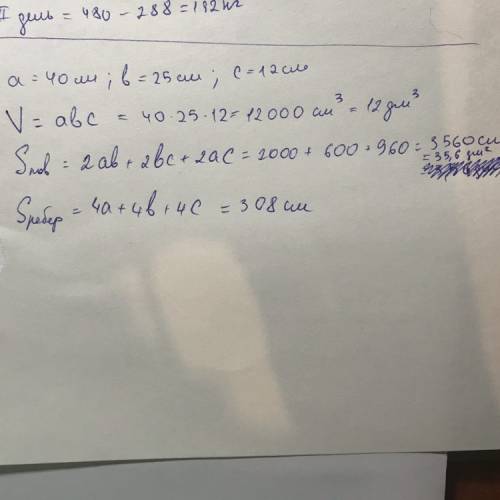 II день = 480 - 288 = 192 кг
a = 40 см ; b = 25 см ; c = 12 см
V = abc = 40·25·12 = 12000 см³ = 12 дм³
Sпов = 2ab + 2bc + 2ac = 2000 + 600 + 960 = 3560 см
= 35,6 дм²
Sребер = 4a + 4b + 4c = 308 см